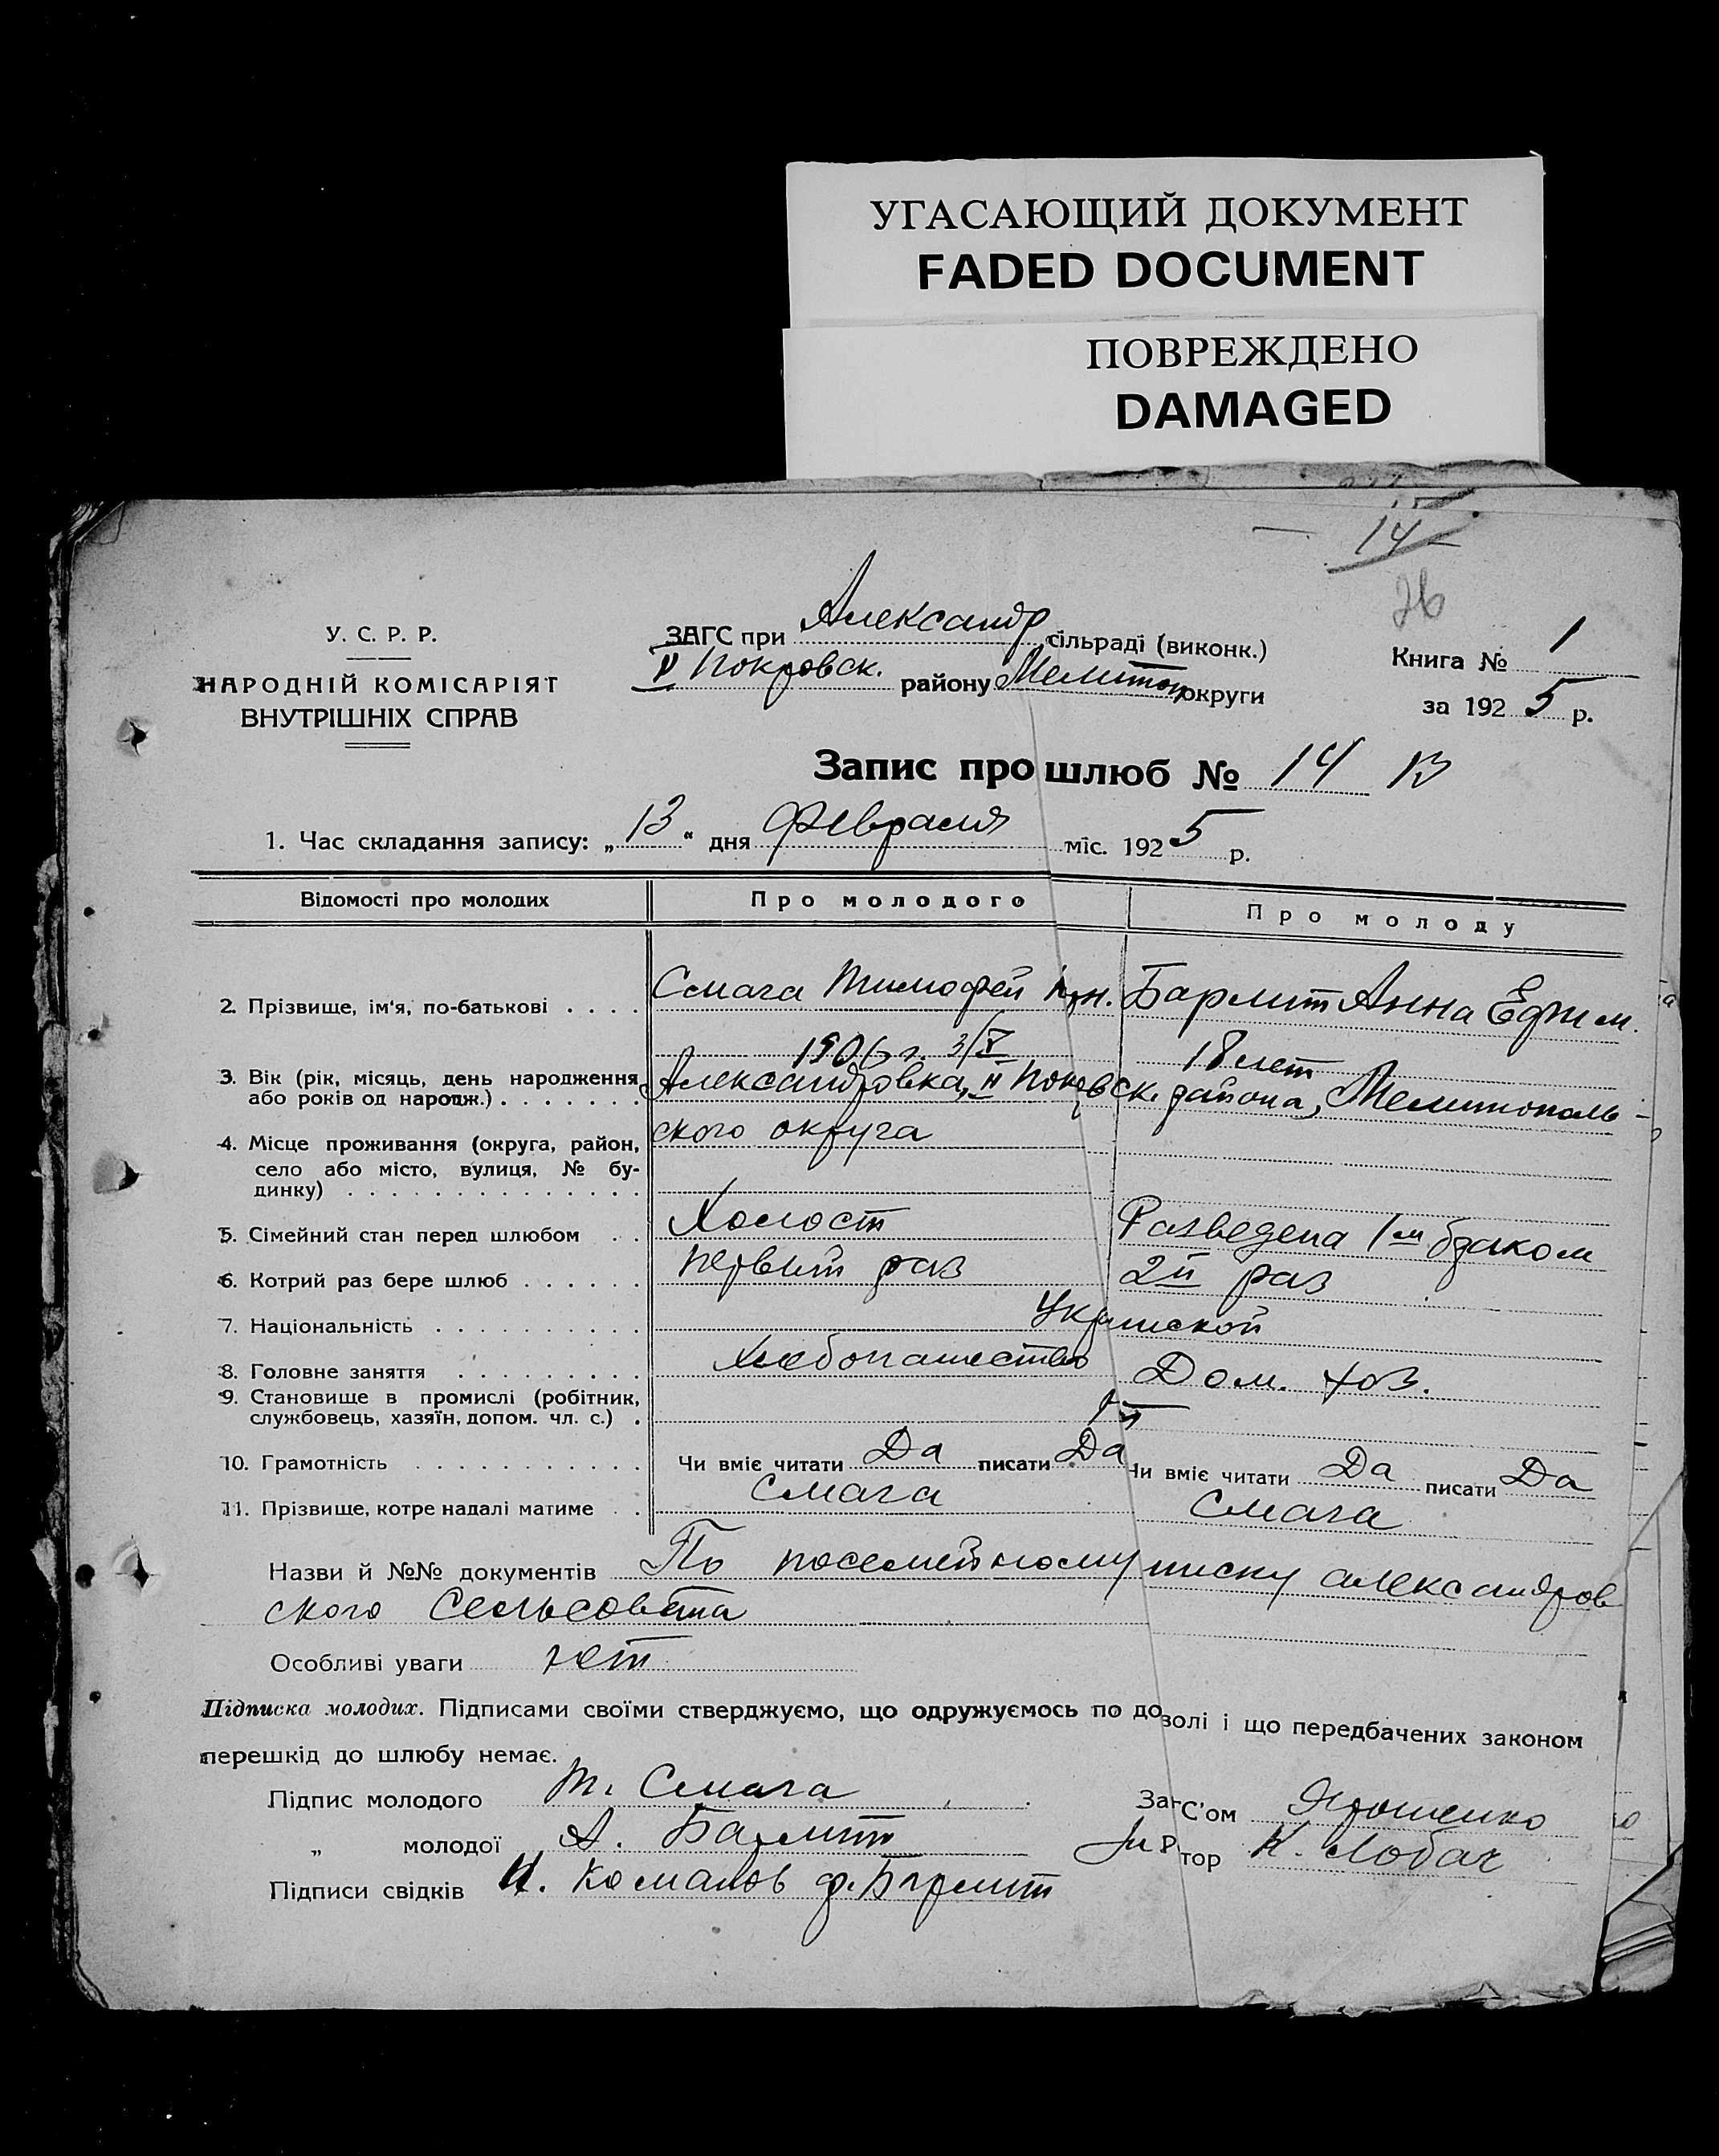 УГАСАЮЩИЙ ДОКУМЕНТ
FADED DOCUMENT
ПОВРЕЖДЕНО
DAMAGED
14
26
У. С. Р. Р.
НАРОДНІЙ КОМІСАРІЯТ
ВНУТРІШНІХ СПРАВ
ЗАГС при Александр сільраді (виконк.)
Покровск. району Мелитоп округи
Книга № 1
за 1925 р.
Запис про шлюб № 14
1. Час складання запису: „13“ дня февраля міс. 1925 р.
Відомості про молодих Про молодого Про молоду
2. Прізвище, ім'я, по-батькові . . . . Смага Тимофей Бармит Анна Ефим.
1906 г. 3/V 18 лет
3. Вік (рік, місяць, день народження або років од народж.) . . . . . . . Александровка, Покровск. района, Мелитополь-
4. Місце проживання (округа, район, село або місто, вулиця, № будинку) . . . . . . . . . . . . . . ского округа
5. Сімейний стан перед шлюбом . . Холост Разведена 1м браком
6. Котрий раз бере шлюб . . . . . . первый раз 2й раз
7. Національність . . . . . . . . . .
8. Головне заняття . . . . . . . . . Хлебопашество Дом. хоз.
9. Становище в промислі (робітник, службовець, хазяїн, допом. чл. с.) .
10. Грамотність . . . . . . . . . . . Чи вміє читати Да писати Да Чи вміє читати Да писати Да
11. Прізвище, котре надалі матиме . . Смага Смага
Назви й №№ документів По посемейному списку александров
ского Сельсовета
Особливі уваги нет
Підписка молодих. Підписами своїми стверджуємо, що одружуємось по дозволі і що передбачених законом
перешкід до шлюбу немає.
Підпис молодого Т. Смага ЗагС'ом Ярошенко
„ молодої А. Бармит тор Н. Лобач
Підписи свідків Ф. Бармит